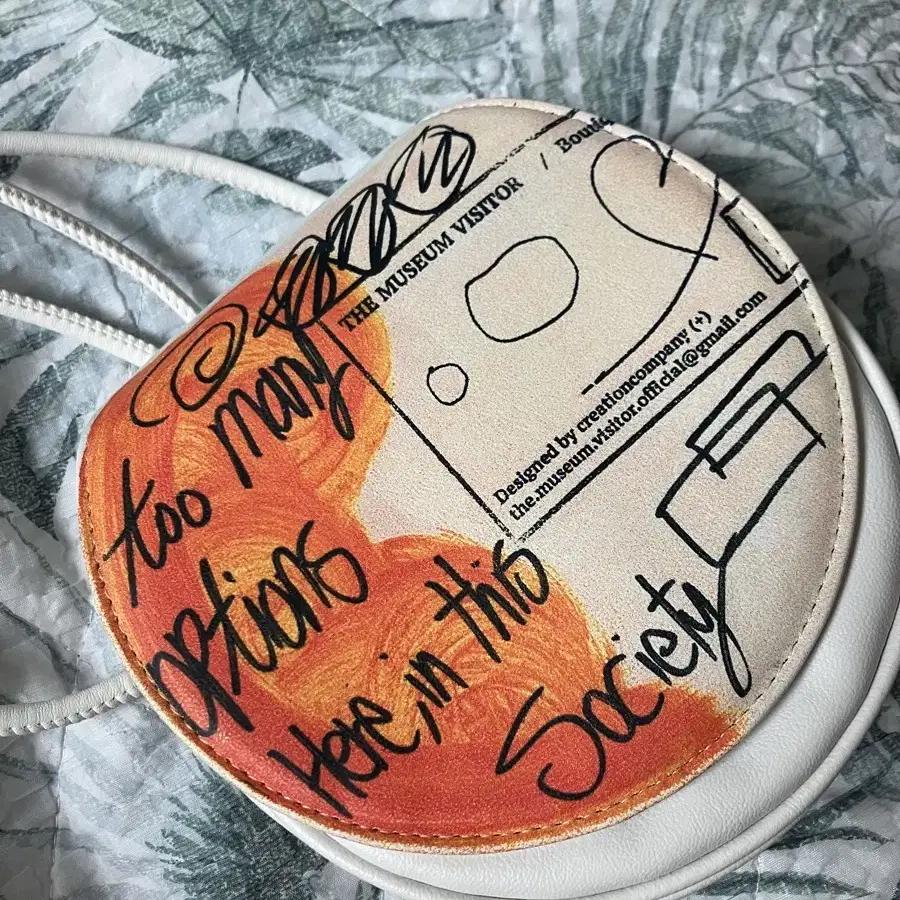 THE MUSEUM VISITOR / Boutiq
Designed by creationcompany (+)
the.museum.visitor.official@gmail.com
too many
options
Here, in this
Society